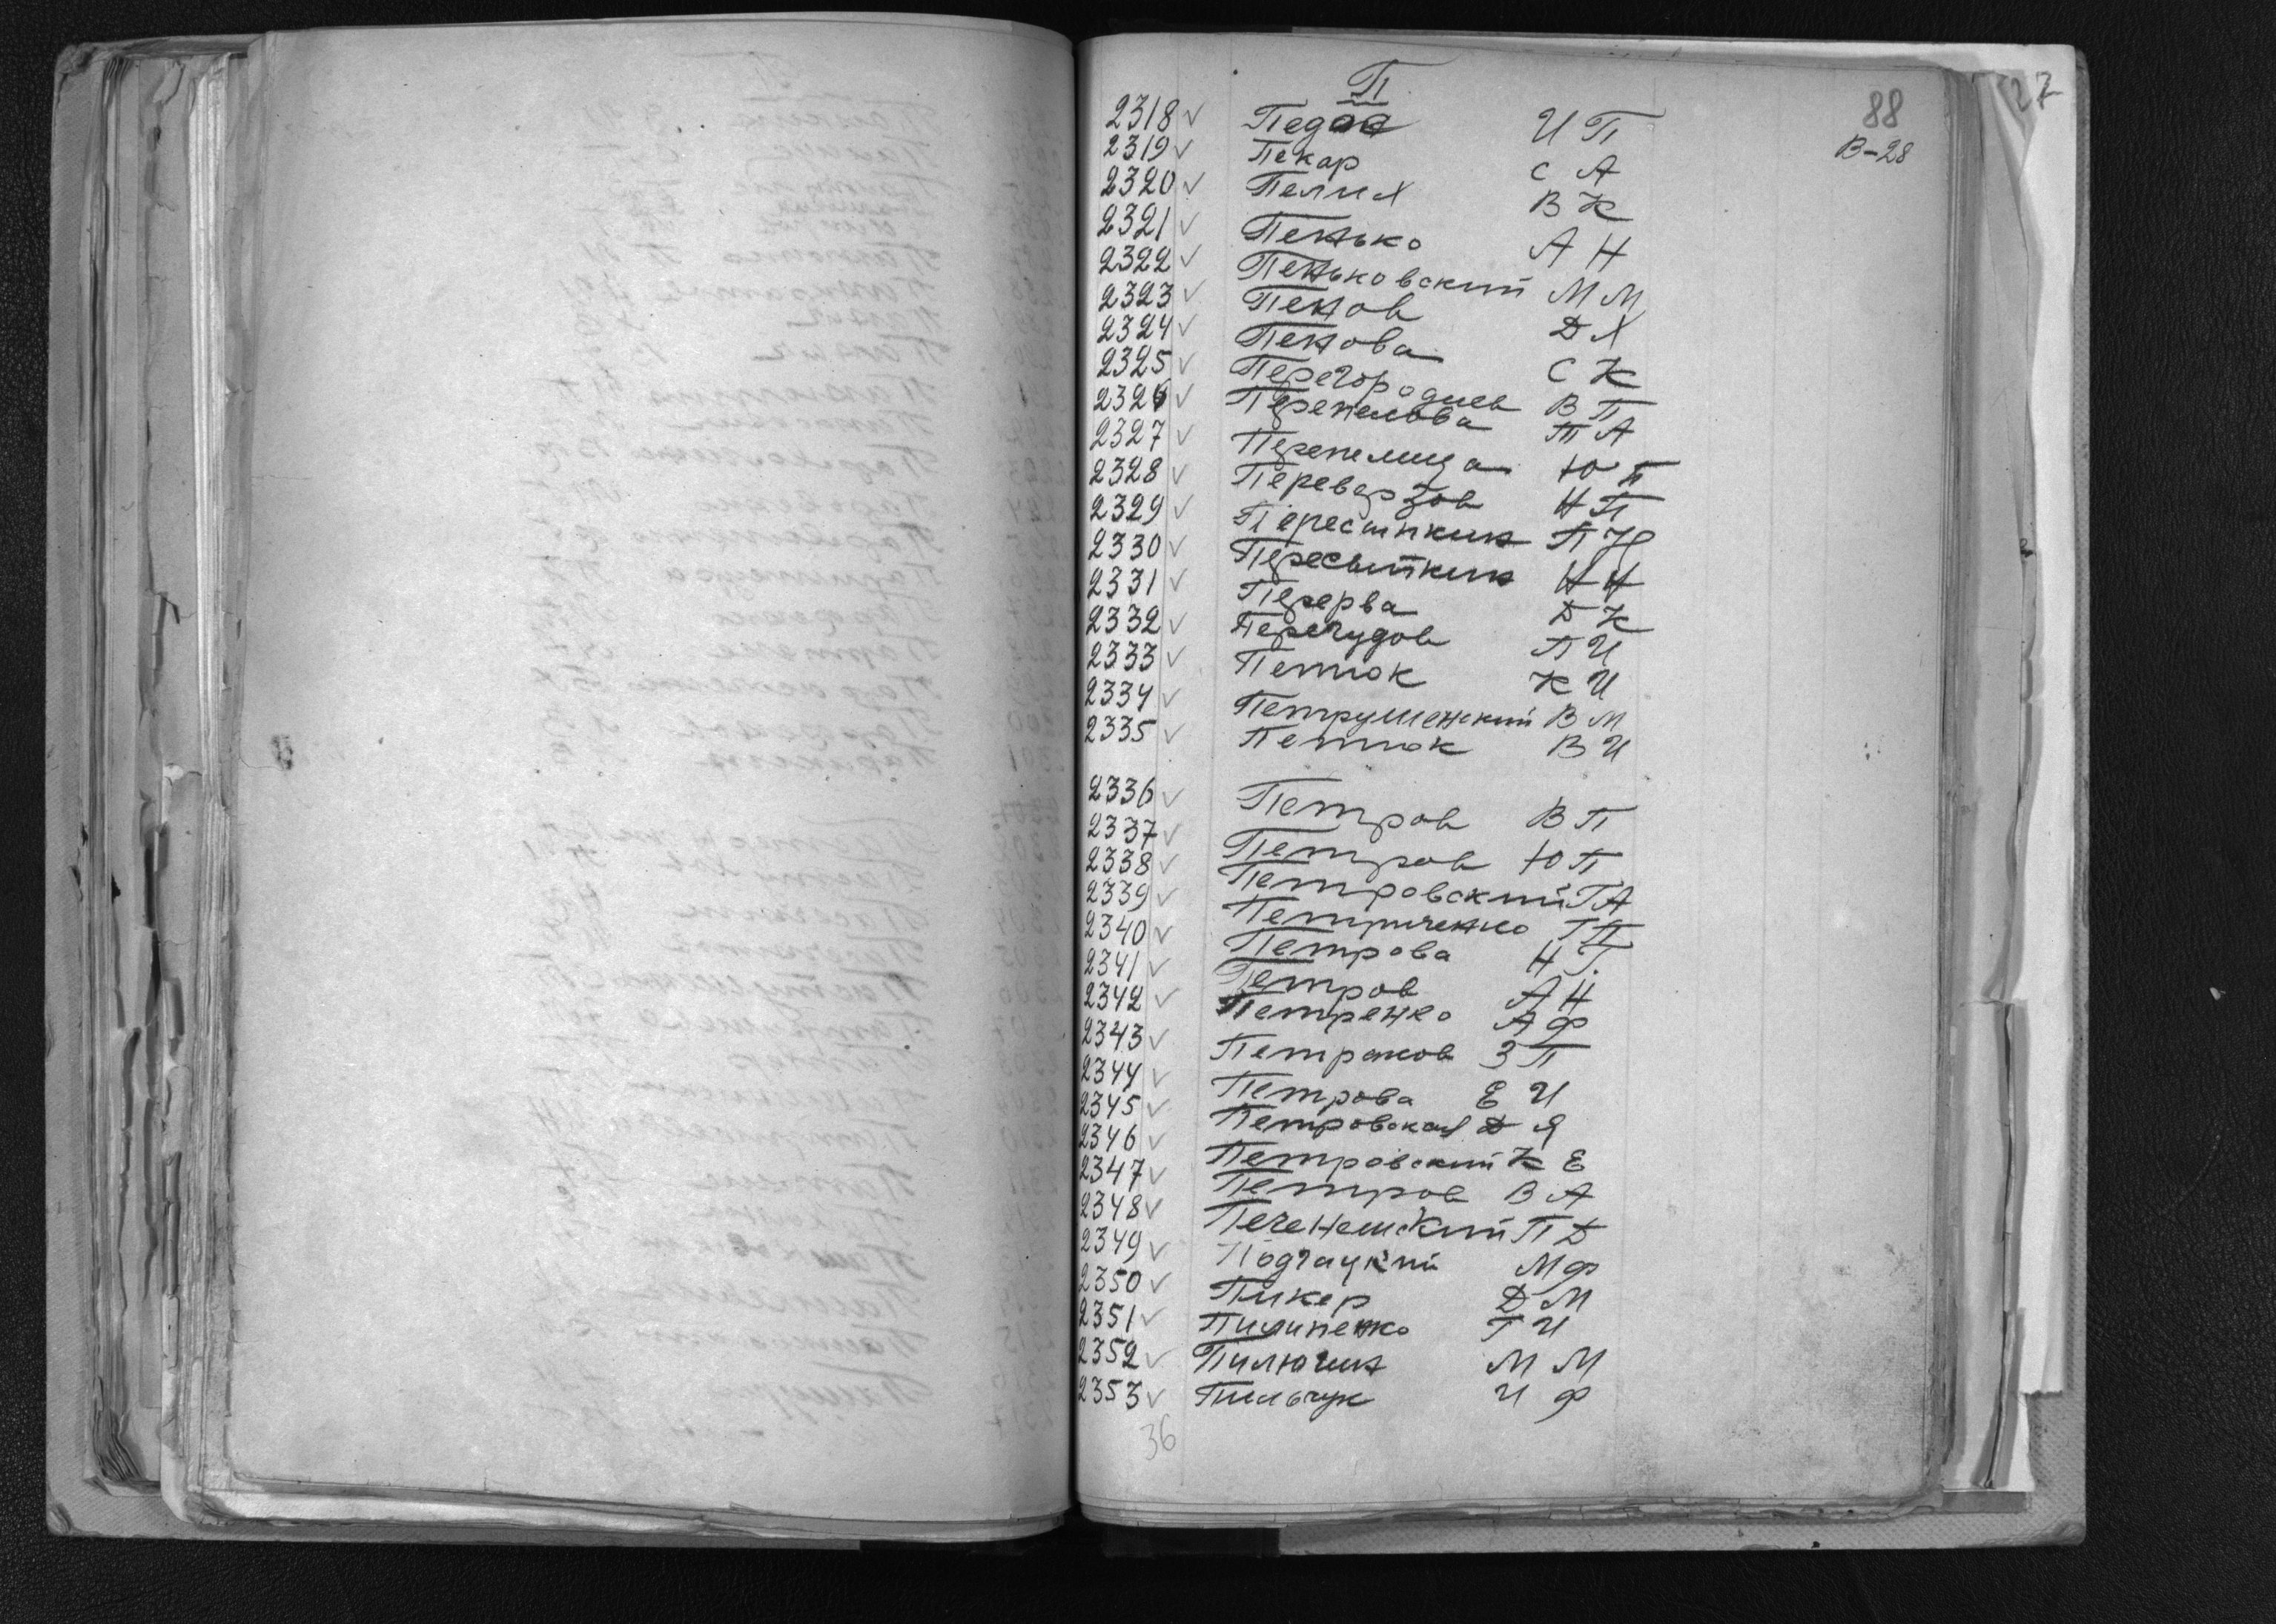 27
П
88
В-28
2318 ✓ И П
2319 ✓ Пекар С А
2320 ✓ Пелих В К
2321 ✓ Пенько А Н
2322 ✓ Пеньковский М М
2323 ✓ Пенов Д Х
2324 ✓ Пенова С К
2325 ✓ Перегороднев В П
2326 ✓ Перепелова П А
2327 ✓ Перепелица Ю П
2328 ✓ Перевързов Н П
2329 ✓ П Н
2330 ✓ Пересыпкин Н Н
2331 ✓ Перерва Д К
2332 ✓ Перечудов П И
2333 ✓ Петюк К И
2334 ✓ Петрушенский В М
2335 ✓ Петюк В И
2336 ✓ Петров В П
2337 ✓ Петров Ю П
2338 ✓ Петровский Г А
2339 ✓ Петриченко Г П
2340 ✓ Петрова Н Г.
2341 ✓ Петров А Н
2342 ✓ Петренко А Ф
2343 ✓ Петраков З П
2344 ✓ Петрова Е И
2345 ✓ Петровская Д Я
2346 ✓ Петровский К Е
2347 ✓ Петров В А
2348 ✓ П Д
2349 ✓ М Ф
2350 ✓ Пикер Д М
2351 ✓ Пилипенко Г И
2352 ✓ Пилюгин М М
2353 ✓ Пильчук И Ф
36